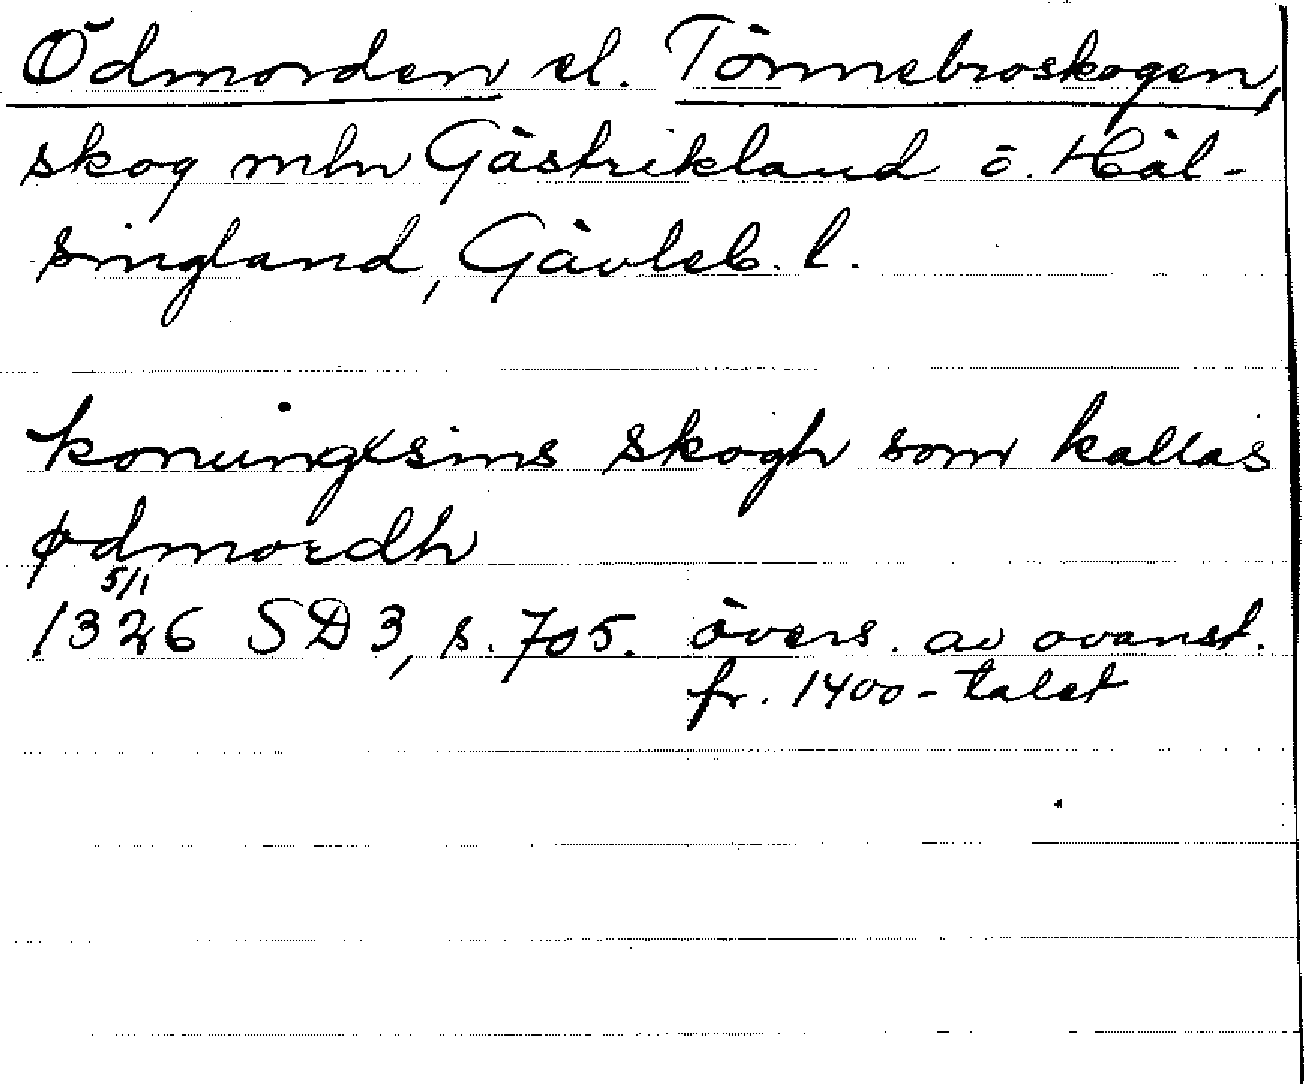 Ödmorden el. Tönnebroskogen,
skog mln Gästrikland o. Häl-
singland, Gävleb. l.
konungxsins skogh som kallas
ødmordh
5/1
1326 SD 3, s. 705. övers. av ovanst.
fr. 1400-talet